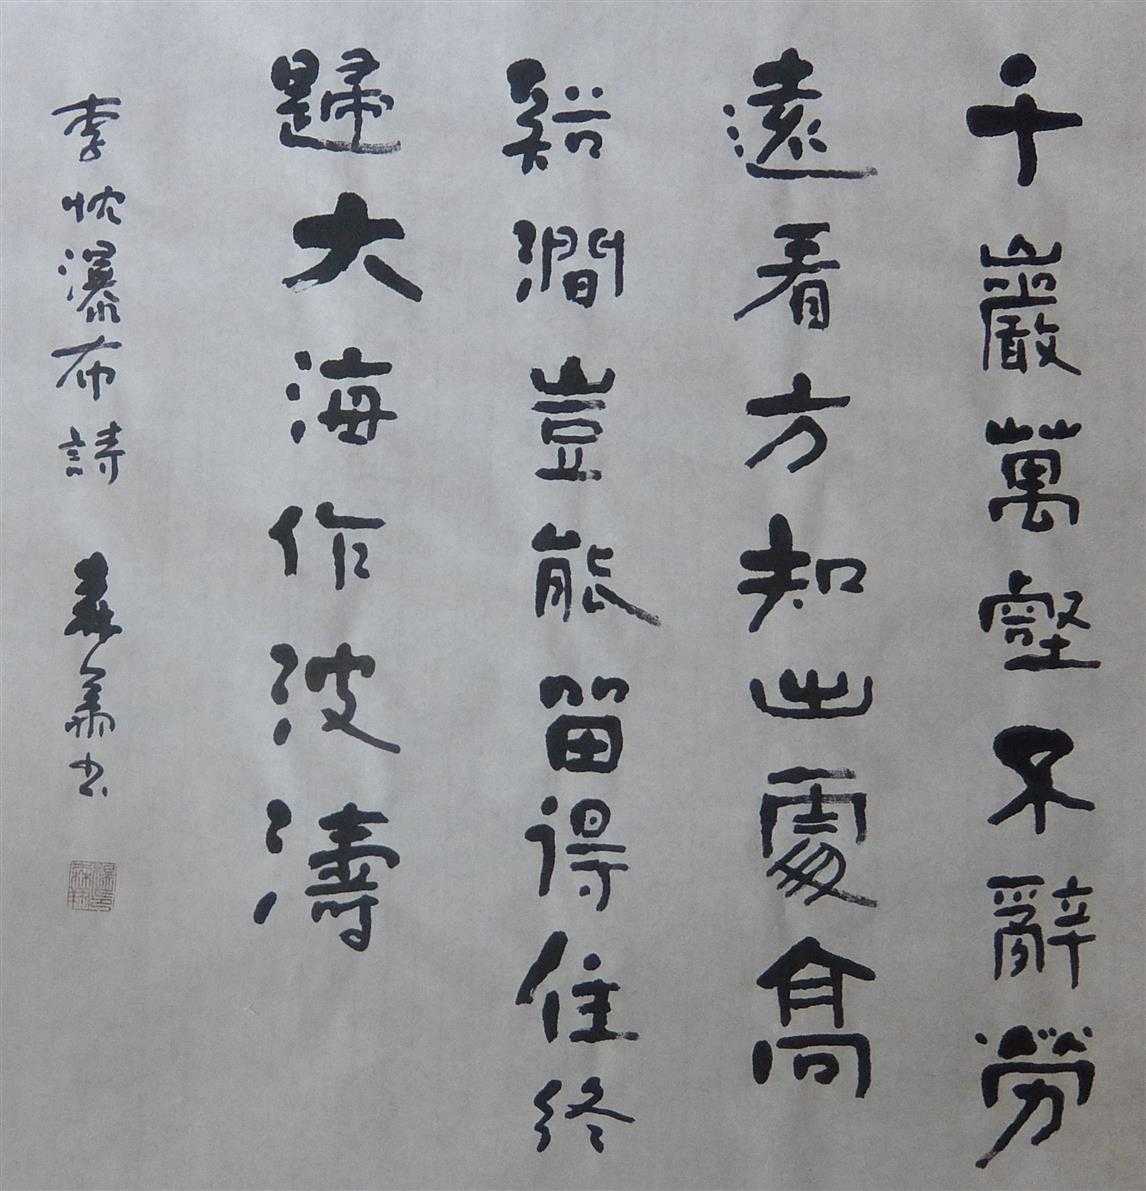 千巖萬壑不辭勞
遠看方知出處高
谿澗豈能留得住終
歸大海作波濤
李忱瀑布詩